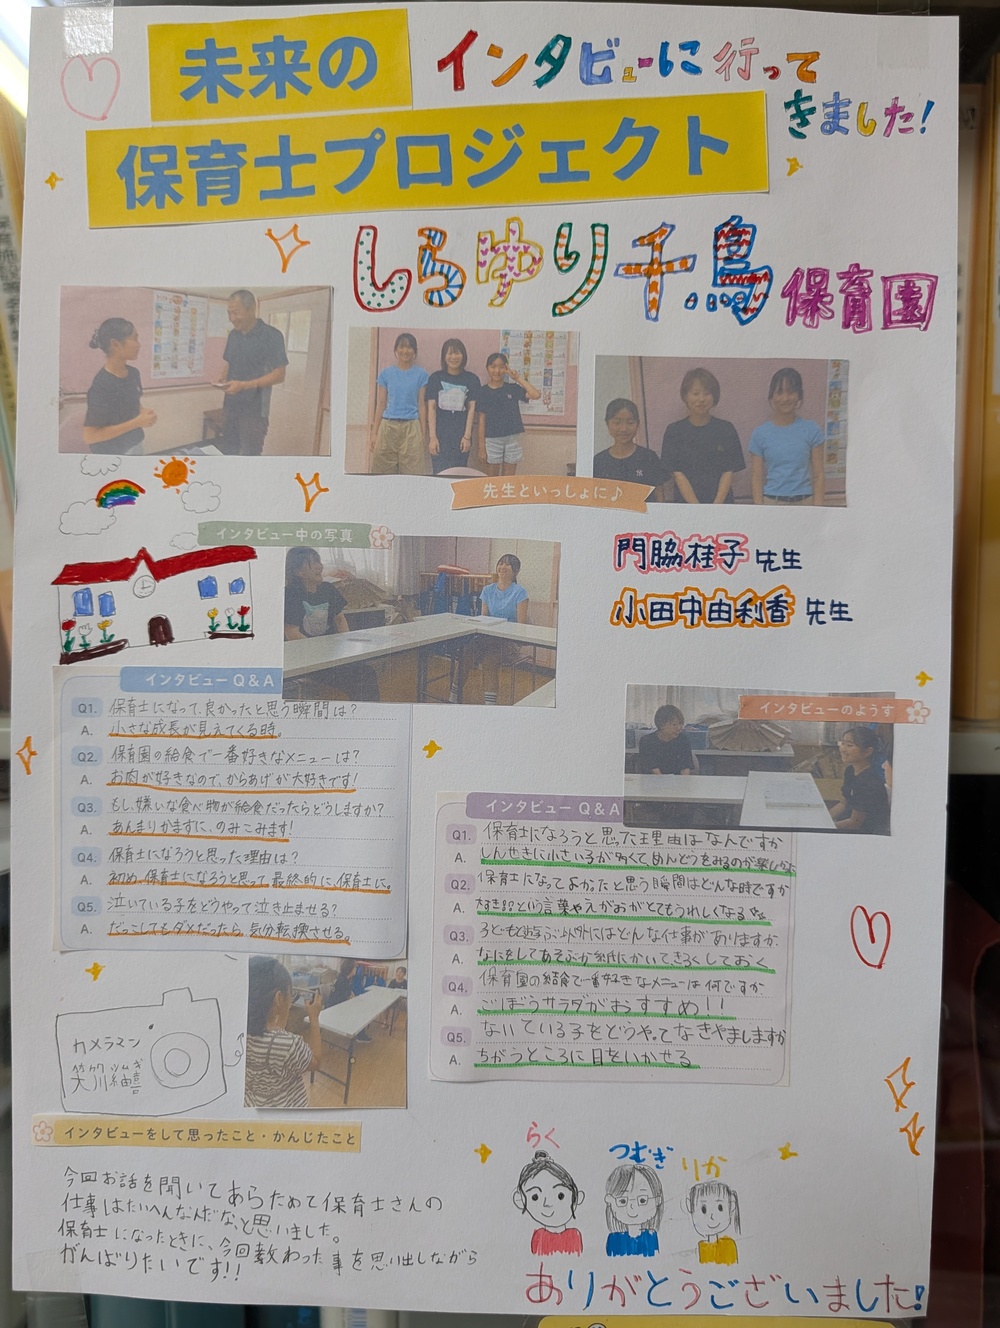 未来の
保育士プロジェクト
インタビューに行って
きました!
しらゆり千鳥保育園
先生といっしょに♪
インタビュー中の写真
門脇桂子先生
小田中由利香先生
インタビューQ&A
Q1. 保育士になって、良かったと思う瞬間は?
A. 小さな成長が見えてくる時。
Q2. 保育園の給食で一番好きなメニューは?
A. お肉が好きなので、からあげが大好きです!
Q3. もし、嫌いな食べ物が給食だったらどうしますか?
A. あんまりかまずに、のみこみます!
Q4. 保育士になろうと思った理由は?
A. 初め、保育士になろうと思って、最終的に、保育士に。
Q5. 泣いている子をどうやって泣き止ませる?
A. だっこしてもダメだったら、気分転換させる。
インタビューのようす
インタビューQ&A
Q1. 保育士になろうと思った理由はなんですか
A. しんせきに小さい子が多くてめんどうをみるのが楽しかった
Q2. 保育士になってよかったと思う瞬間はどんな時ですか
A. すき!!という言葉やえがおがとてもうれしくなる
Q3. 子どもと遊ぶ以外にはどんな仕事がありますか
A. なにをしてあそぶか紙にかいてきろくしておく
Q4. 保育園の給食で一番好きなメニューは何ですか
A. ごぼうサラダがおすすめ!!
Q5. ないている子をどうやってなきやましますか
A. ちがうところに目をいかせる
カメラマン
笑川紬嘻
つむぎ
インタビューをして思ったこと・かんじたこと
今回お話を聞いてあらためて保育士さんの
仕事はたいへんなんだなと思いました。
保育士になったときに、今回教わった事を思い出しながら
がんばりたいです!!
らく
つむぎ
りか
ありがとうございました!